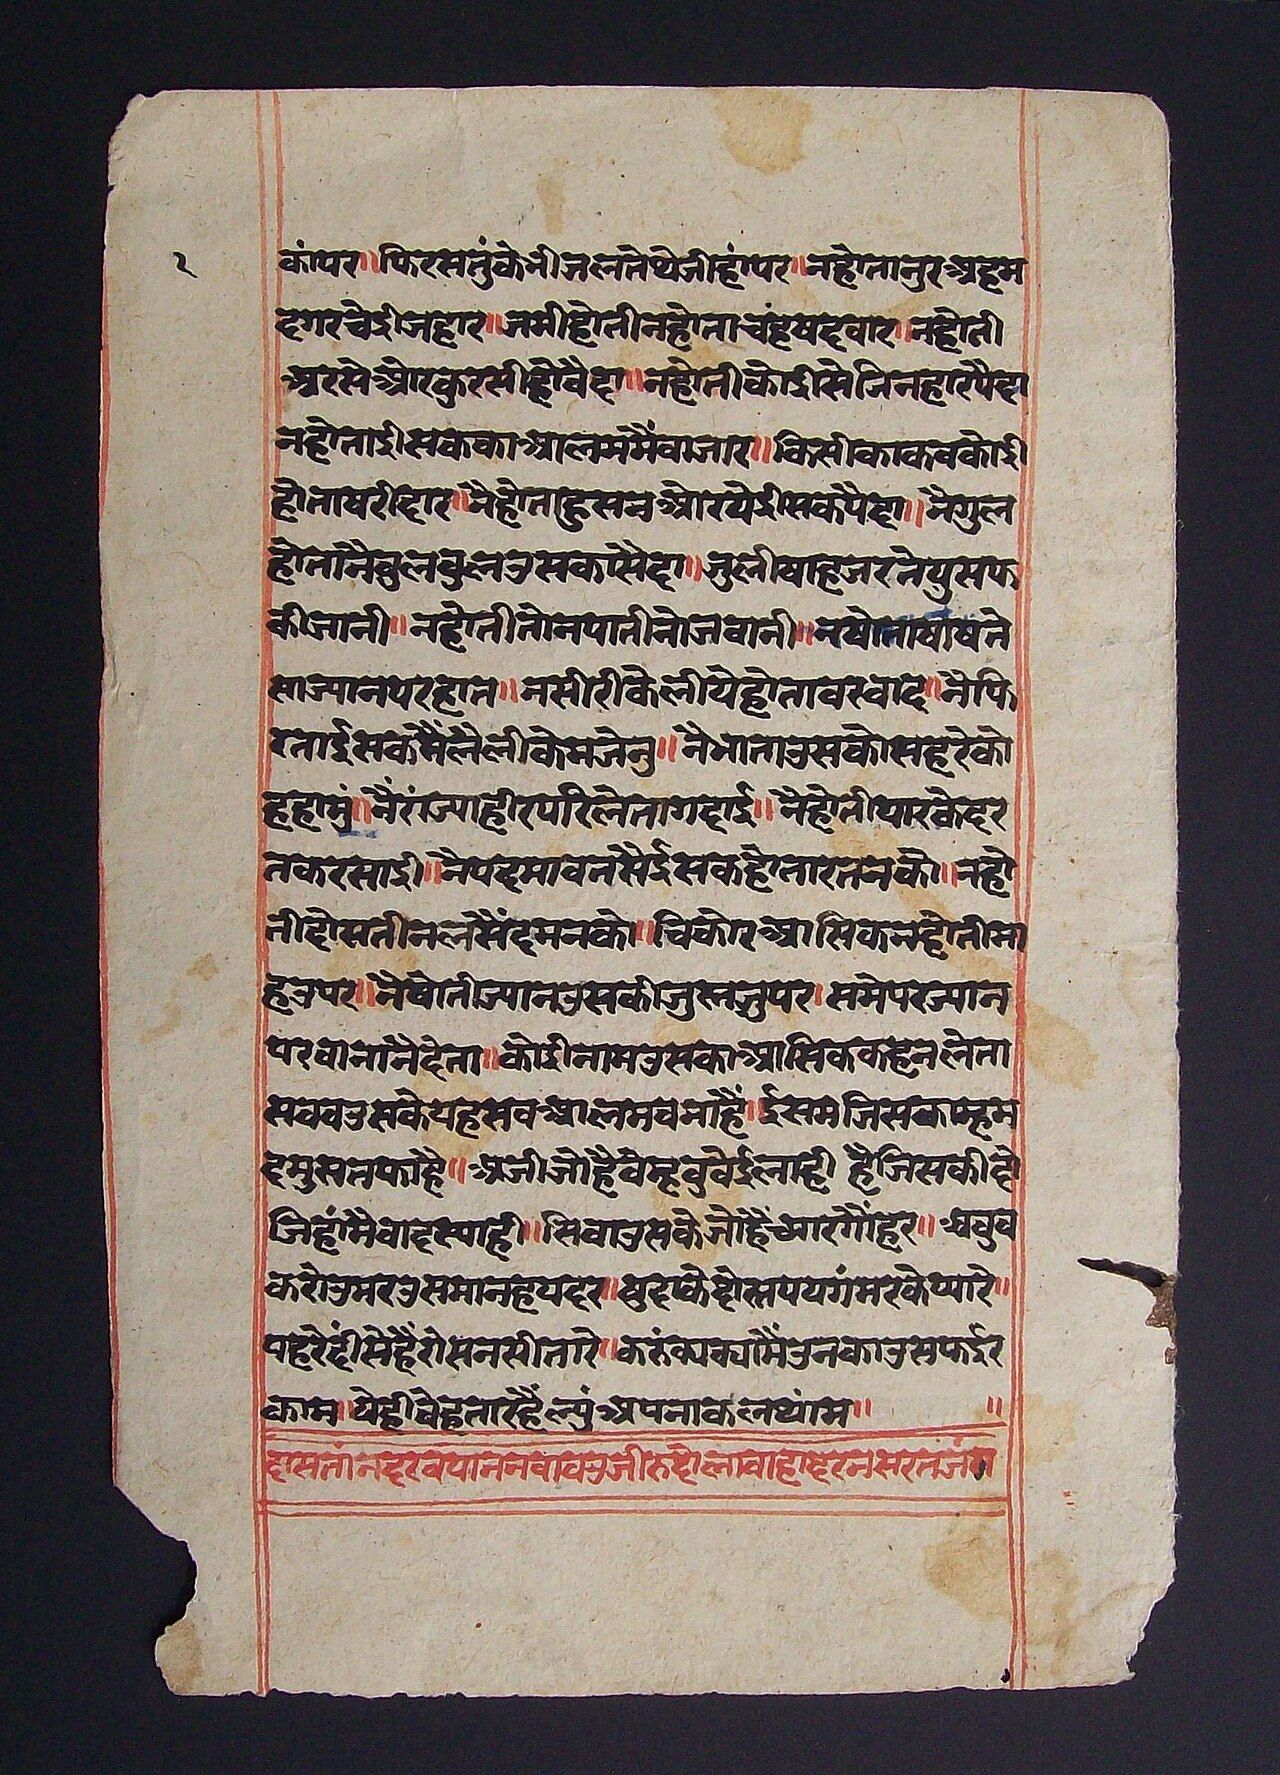 २
कांपर॥फिरसतुंकेनीजलतेथेजीहांपर॥नहोतानुरअहम
दगरचेईीजहार॥जमीहोतीनहोताचंहषदवार॥नहोती
अरसेओरकुरसीहोवैदा॥नहोतीकोईीसेजिनहारपैदा
नहोताईीसकका आलममैंवाजार॥किसीकाकवकोईी
होताषरीदार॥नैहोताहुसनओरयेईीसकपैदा॥नैगुल
होतानैवुलवुलउसकासैदा॥जुलीषाहजरतेयुसफ
कीजानी॥नहोतीतोनपातीनोजवानी॥नषोताषीषते
साज्यानपरहात॥नसीरीकेलीयेहोतावरवाद॥नैफि
रताईसकमैंलैलीकेमजेनु॥नैभाताउसकोसहरेको
हहामुं॥नैरांज्याहीरपरिलेतागदाई॥नैहोतीयारकेदर
तकरसाईी॥नैपदमावतसैईसकहोतारतनको॥नहो
तीदोसतीनलसैंदमनको॥चिकोरआसिकनहोतीमा
हउपर॥नैषोतीज्यानउसकीजुस्तजुपर।समेपरज्यान
परवानांनैदेता॥कोईीनामउसकाआसिककहनलेता
सववउसकेयहसवआलमवनाहैं।ईसमजिसकाम्हम
दमुसतफाहै॥अजीजोहैवेम्हवुवेईलाही हैजिसकीदो
जिहांमैवादस्याही॥सिवाउसकेजोहैंच्यारगौंहर॥अवुव
करोउमरउसमानहयदर॥षुदाकेदोस्तपयगंमरकेप्यारे॥
पहरेदींसेहैंरोसनसीतारे॥करुंक्याक्यामैंउनकाउसफईर
काम॥येहीवेहतारहैंल्युंअपनाकलथांम॥ ॥
दासतांनदरवयाननवाववजीरुदोलावाहादरनसरतजंग